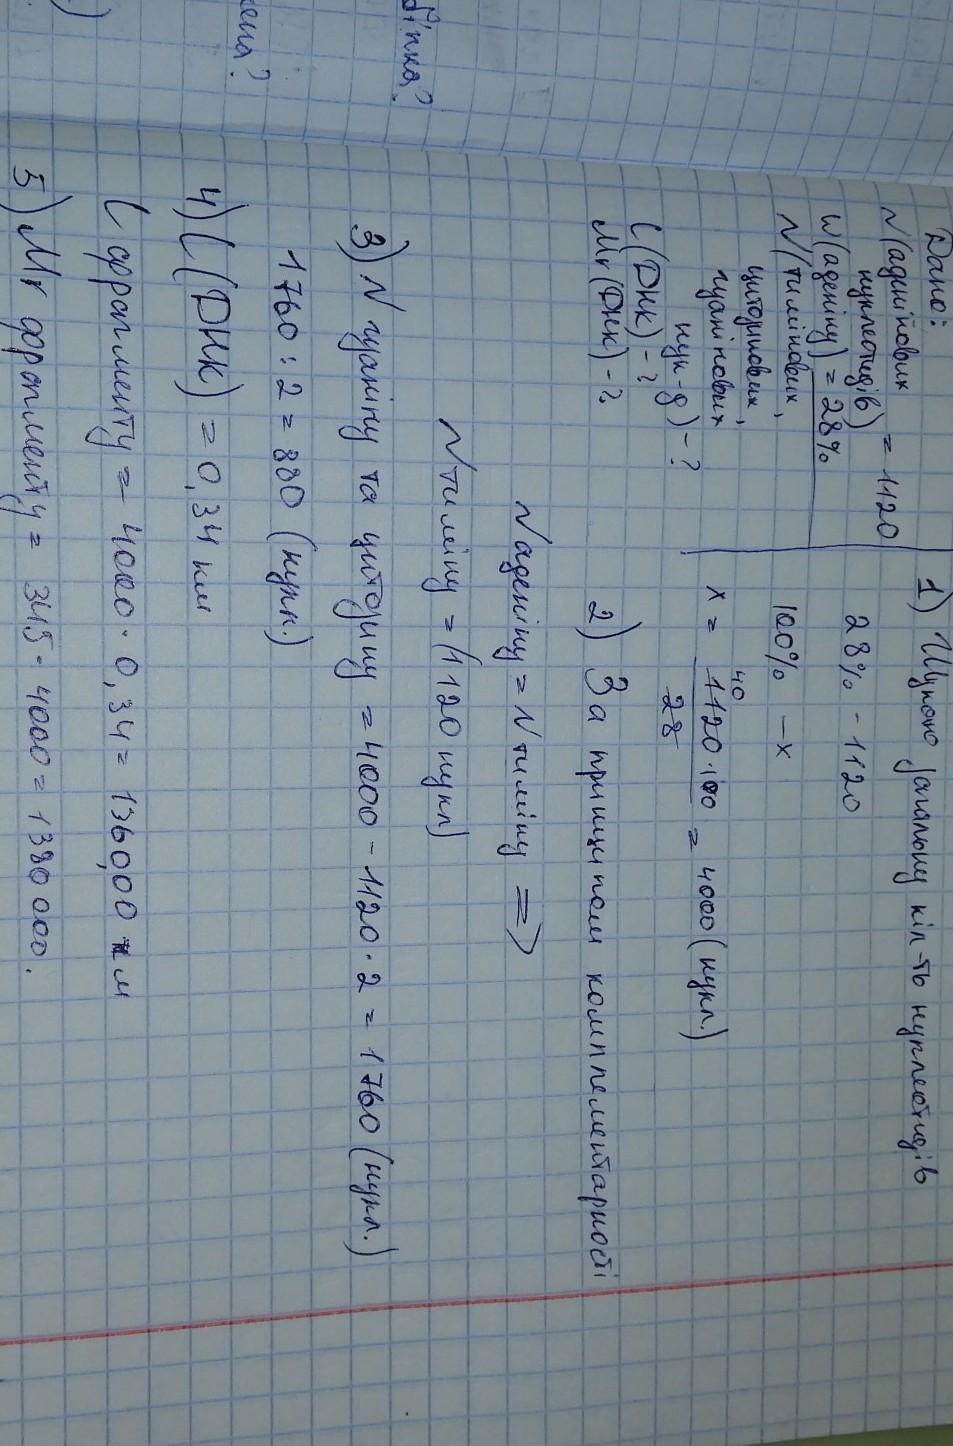 Дано:
N(аденінових
нуклеотидів) = 1120
W(аденіну) = 28%
N(тимінових,
цитозинових,
гуанінових
нук-д) - ?
L(ДНК) - ?
Mr(ДНК) - ?
1) Шукаю загальну кіл-ть нуклеотидів
28% - 1120
100% - x
40
x = 1120·100 / 28 = 4000 (нукл.)
2) За принципом комплементарності
N аденіну = N тиміну =>
N тиміну = (1120 нукл)
3) N гуаніну та цитозину = 4000 - 1120·2 = 1760 (нукл.)
1760 : 2 = 880 (нукл.)
4) L(ДНК) = 0,34 нм
L фрагменту = 4000 · 0,34 = 1360,00 нм
5) Mr фрагменту = 345 · 4000 = 1380 000.
бінка?
ена?